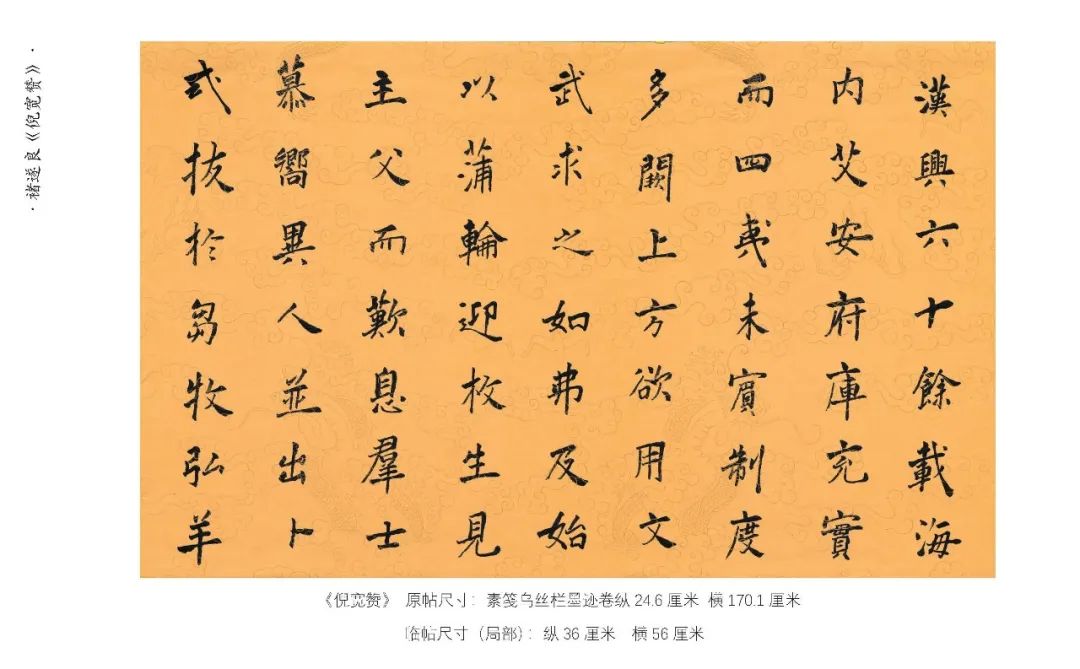 ·褚遂良《倪宽赞》·
漢興六十餘載海
内艾安府庫充實
而四夷未賓制度
多闕上方欲用文
武求之如弗及始
以蒲輪迎枚生見
主父而歎息羣士
慕嚮異人並出卜
式拔於芻牧弘羊
《倪宽赞》 原帖尺寸：素笺乌丝栏墨迹卷纵 24.6 厘米 横 170.1 厘米
临帖尺寸（局部）：纵 36 厘米 横 56 厘米